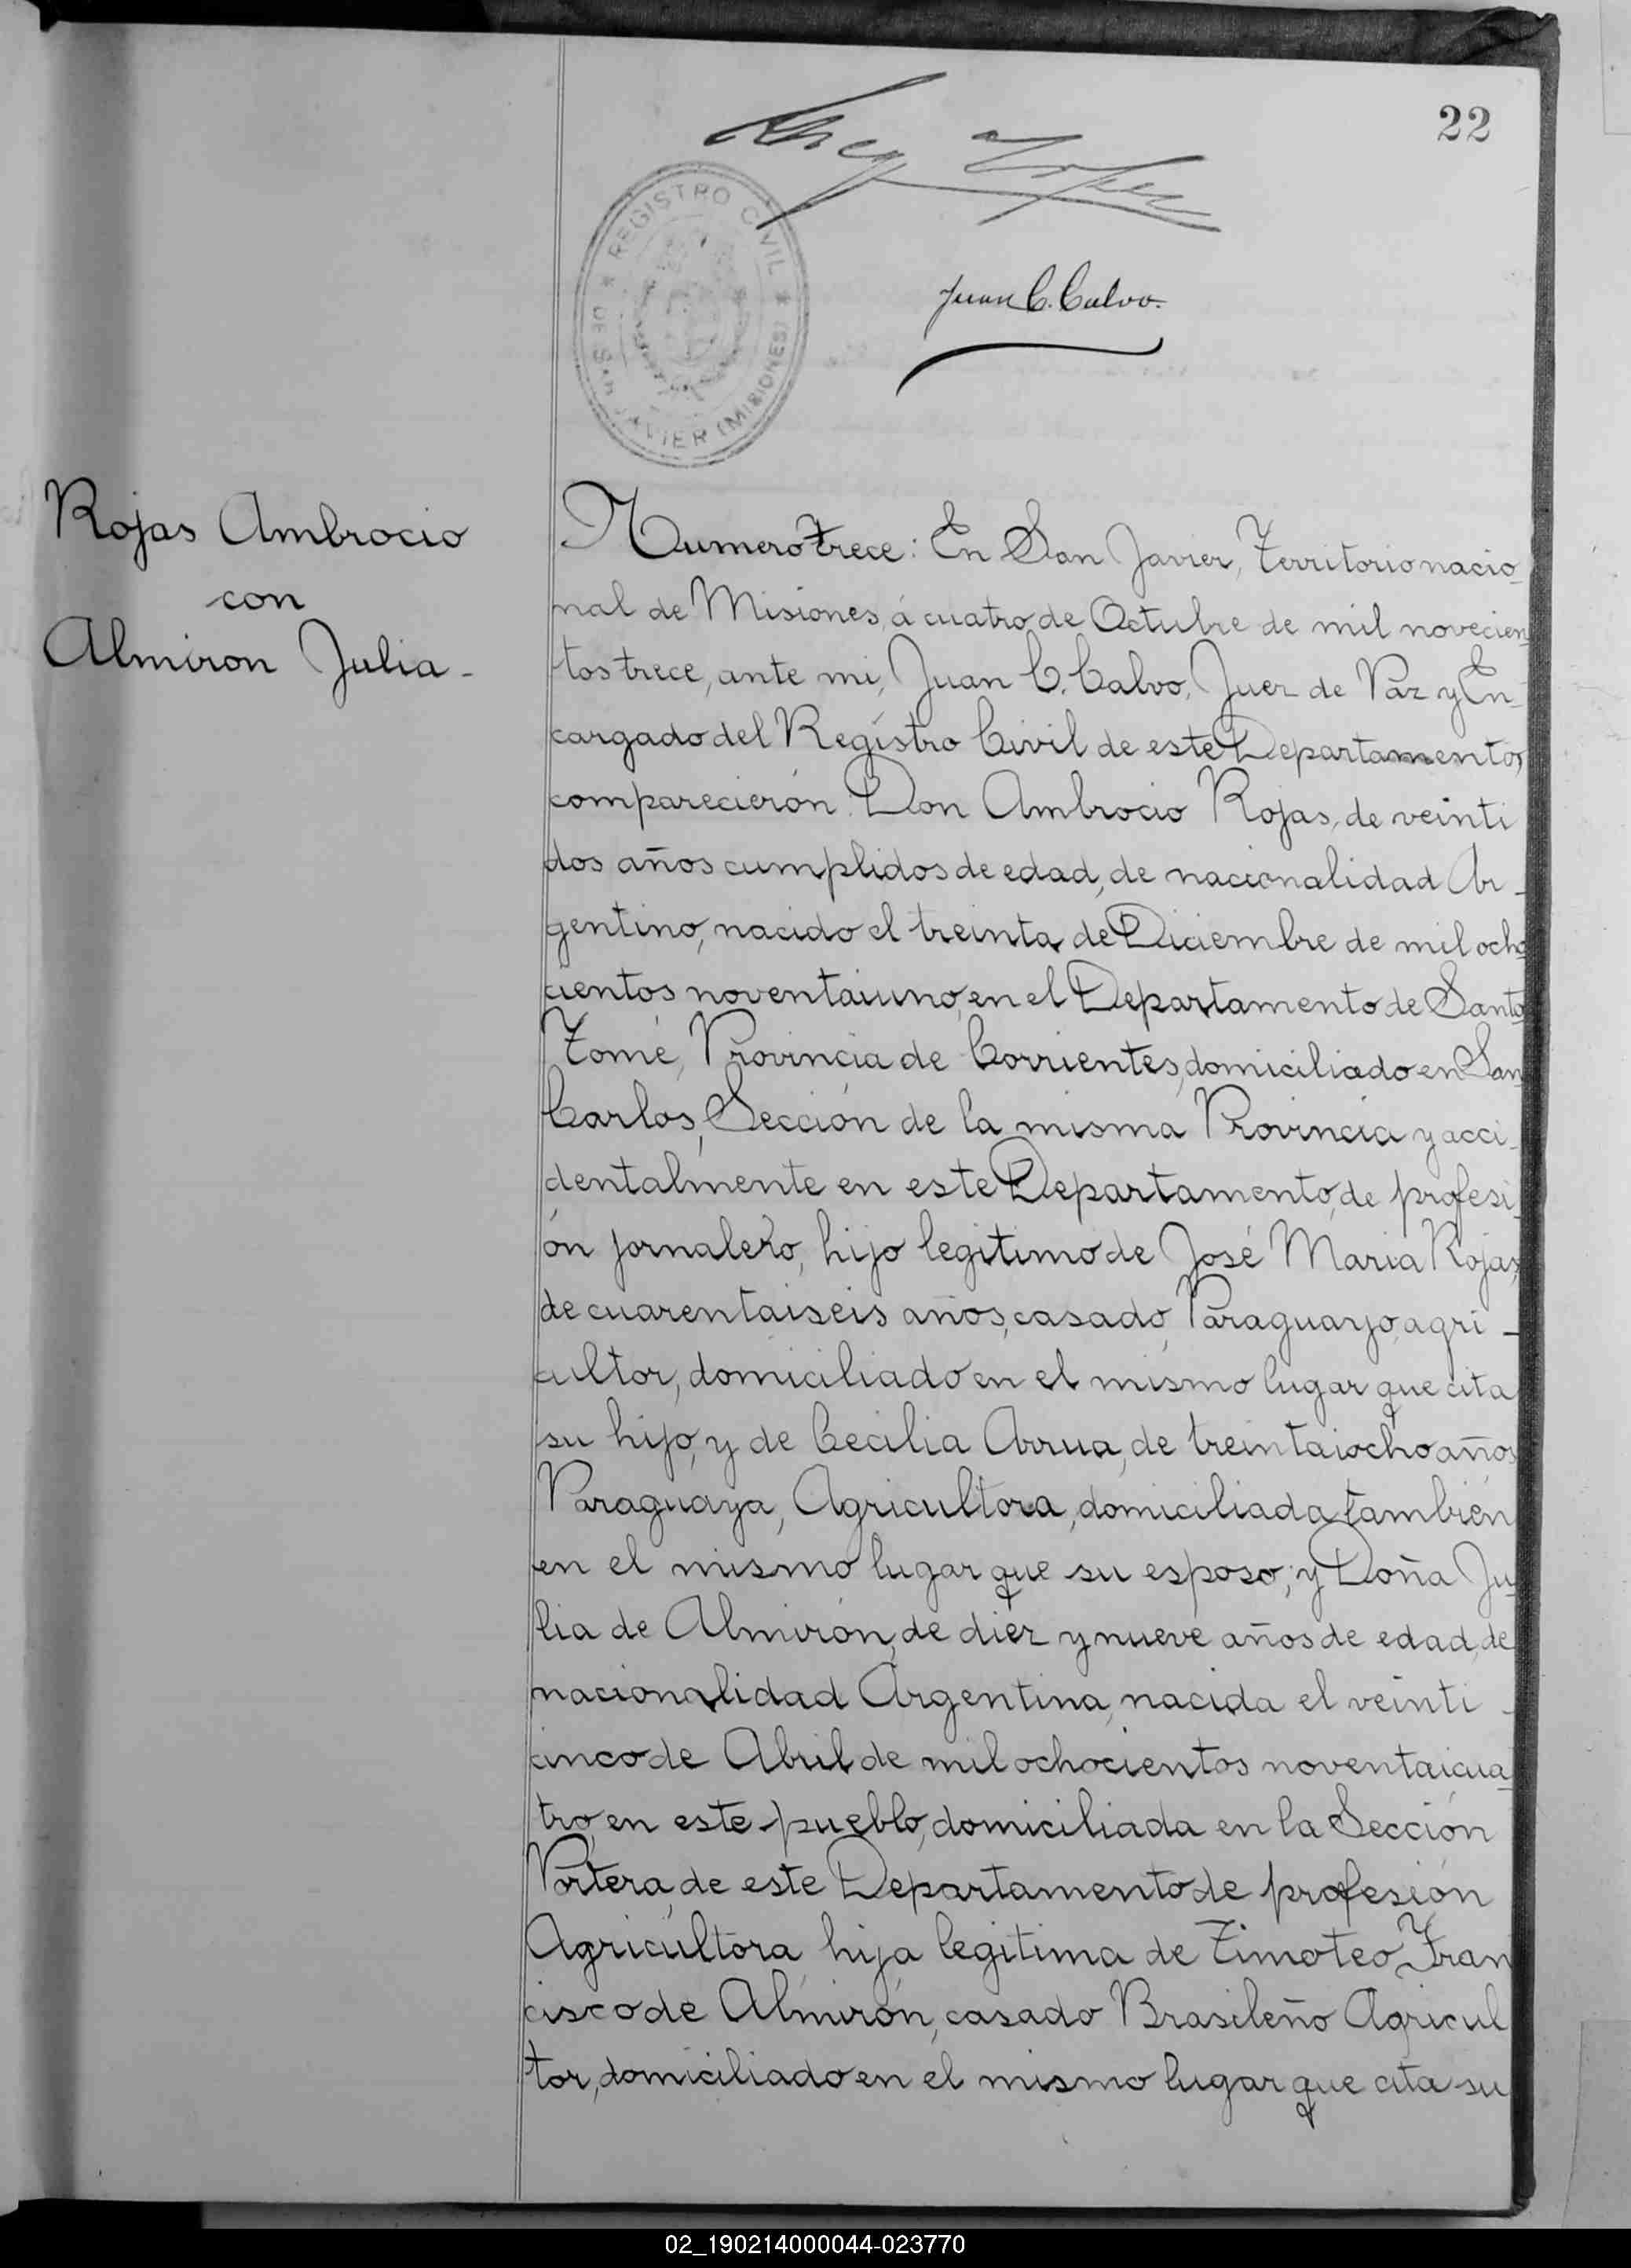 22
REGISTRO CIVIL
DE SAN JAVIER (MISIONES)
Juan C. Calvo.
Rojas Ambrocio
con
Almiron Julia -
Numero trece: En San Javier, Territorio nacio-
nal de Misiones, á cuatro de Octubre de mil novecien
tos trece, ante mi, Juan C. Calvo, Juez de Paz y En-
cargado del Registro Civil de este Departamento,
comparecierón: Don Ambrocio Rojas, de veinti
dos años cumplidos de edad, de nacionalidad Ar-
gentino, nacido el treinta de Diciembre de mil ocho
cientos noventaiuno, en el Departamento de Santo
Tomé, Provincia de Corrientes, domiciliado en San
Carlos, Sección de la misma Provincia y acci-
dentalmente en este Departamento, de profesi-
ón jornalero, hijo legitimo de José Maria Rojas,
de cuarentaiseis años, casado, Paraguayo, agri-
cultor, domiciliado en el mismo lugar que cita
su hijo, y de Cecilia Arrua, de treintaiocho años
Paraguaya, Agricultora, domiciliada también
en el mismo lugar que su esposo; y Doña Ju-
lia de Almirón, de diez y nueve años de edad, de
nacionalidad Argentina, nacida el veinti-
cinco de Abril de mil ochocientos noventaicua-
tro, en este pueblo, domiciliada en la Sección
Portera, de este Departamento de profesión
Agricultora hija legitima de Timoteo Fran
cisco de Almirón, casado Brasileño Agricul
tor, domiciliado en el mismo lugar que cita su
02_190214000044-023770